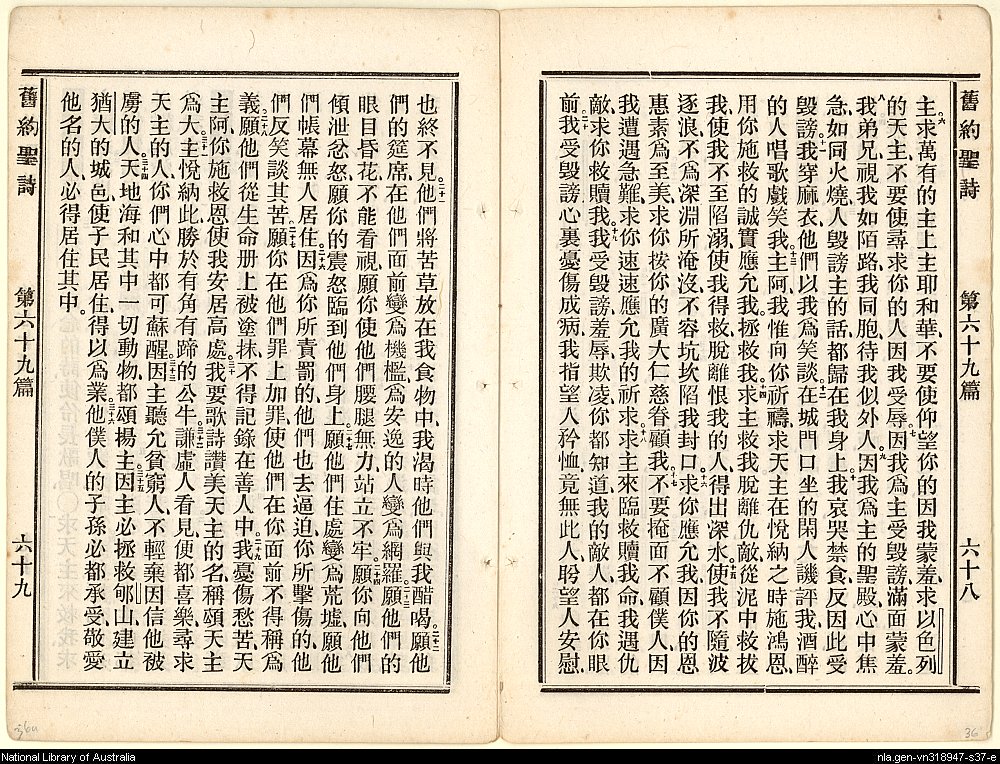 舊約聖詩 第六十九篇 六十八
六主求萬有的主上主耶和華、不要使仰望你的因我蒙羞、求以色列
的天主、不要使尋求你的人因我受辱。七因我爲主受毀謗、滿面蒙羞。
八我弟兄視我如陌路、我同胞待我似外人。九因我爲主的聖殿、心中焦
急、如同火燒、人毀謗主的話、都歸在我身上。十我哀哭禁食、反因此受
毀謗。十一我穿麻衣、他們以我爲笑談。十二在城門口坐的閑人譏評我、酒醉
的人唱歌戲笑我。十三主阿、我惟向你祈禱、求天主在悅納之時、施鴻恩、
用你施救的誠實應允我、拯救我。十四求主救我脫離仇敵、從泥中救拔
我、使我不至陷溺、使我得救脫離恨我的人、得出深水。十五使我不隨波
逐浪、不爲深淵所淹沒、不容坑坎陷我封口。十六求你應允我、因你的恩
惠素爲至美、求你按你的廣大仁慈眷顧我。十七不要掩面不顧僕人、因
我遭遇急難、求你速速應允我的祈求。十八求主來臨救贖我命、我遇仇
敵、求你救贖我。十九我受毀謗、羞辱欺凌、你都知道、我的敵人、都在你眼
前。二十我受毀謗、心裏憂傷成病、我指望人矜恤、竟無此人、盼望人安慰、
也終不見。二十一他們將苦草放在我食物中、我渴時他們與我醋喝。二十二願他
們的筵席、在他們面前變爲機檻、爲安逸的人變爲網羅。二十三願他們的
眼目昏花不能看視、願你使他們腰腿無力、站立不牢。二十四願你向他們
傾泄忿怒、願你的震怒臨到他們身上。二十五願他們住處變爲荒墟、願他
們帳幕無人居住。二十六因爲你所責罰的、他們也去逼迫、你所擊傷的、他
們反笑談其苦。二十七願你在他們罪上加罪、使他們在你面前不得稱爲
義。二十八願他們從生命册上被塗抹、不得記錄在善人中。二十九我憂傷愁苦、天
主阿、你施救恩使我安居高處。三十我要歌詩讚美天主的名、稱頌天主
爲大。三十一主悅納此、勝於有角有蹄的公牛。三十二謙虛人看見、便都喜樂、尋求
天主的人、你們心中都可蘇醒。三十三因主聽允貧窮人、不輕棄因信他被
虜的人。三十四天地海和其中一切動物、都頌揚主。三十五因主必拯救郇山、建立
猶大的城邑、使子民居住、得以爲業。三十六他僕人的子孫、必都承受、敬愛
他名的人、必得居住其中。
舊約聖詩 第六十九篇 六十九
36a
36
National Library of Australia
nla.gen-vn318947-s37-e